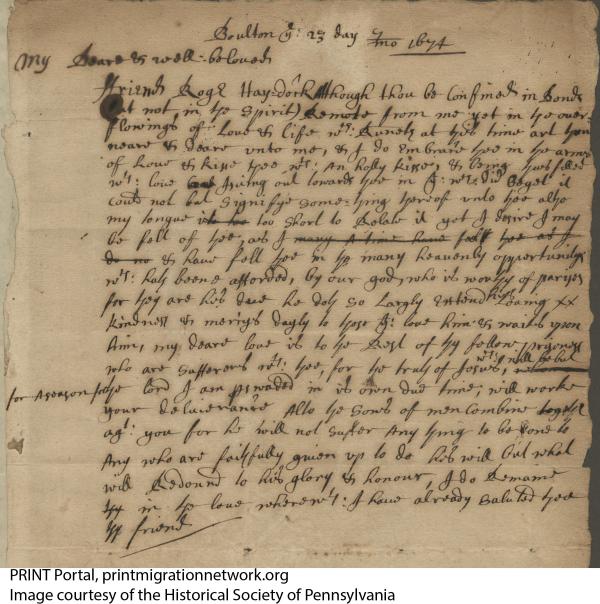 Boulton ye: 23 day 7mo 1674
My Deare & well-beloved
ffriend Rogr Haydock Although thou be confined in Bonds
(but not in the Spirit) Remote from me yet in the over
flowings of Love & life wch: Runeth at this time art thou
neare & deare unto me, & I do Embrace thee in the armes
of Love & kisse thee wth: an holly kisse, & being thus filled
wth: love going out towards thee in yt: wch: did beget it
could not but signifye some-thing hereof unto thee altho
my tongue too short to Relate it yet I desire I may
be felt of thee, as I many a time have felt thee as I
do no & have felt thee in the many heavenly opportunitys
wch: hath beene afforded, by our god, who is worthy of
for they are his due he doth so Largly Extend his
kindness & mercys dayly to those yt: love him & waits upon
him, my deare love is to the Rest of thy fellow prisoners
who are sufferers wth: thee, for the truth of Jesus, wch: will be but
for a season for the lord I am perswaded in its own due time, will worke
your deliverance Altho the sons of men combine together
agt: you for he will not suffer Any thing to be done to
Any who are faithfully given up to do his will but what
will Redound to his glory & honour, I do Remaine
in the love wherewth: I have already saluted thee
thy friend
PRINT Portal, printmigrationnetwork.org
Image courtesy of the Historical Society of Pennsylvania